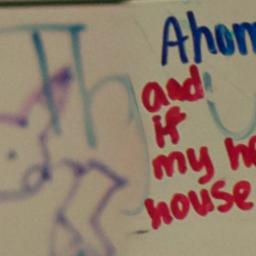 Th
Ahom
and
if
my ho
house